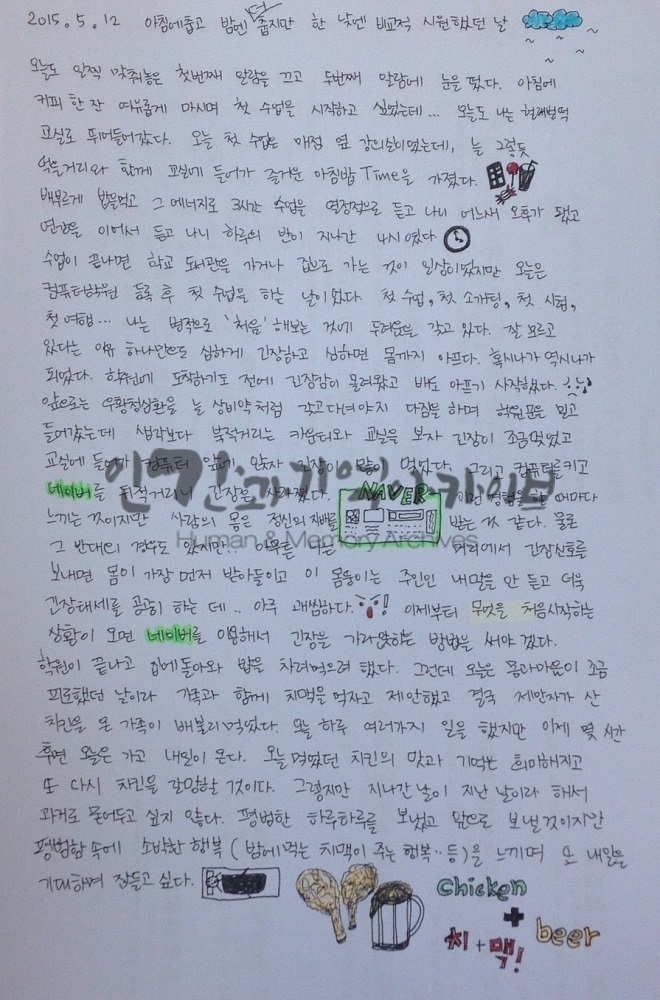 2015. 5. 12 아침에춥고 밤엔 더 춥지만 한 낮엔 비교적 시원했던 날
오늘도 일찍 맞춰놓은 첫번째 알람을 끄고 두번째 알람에 눈을 떴다. 아침에
커피 한 잔 여유롭게 마시며 첫 수업을 시작하고 싶었는데... 오늘도 나는 헐레벌떡
교실로 뛰어들어갔다. 오늘 첫 수업은 매점 옆 강의실이었는데, 늘 그렇듯
먹을거리와 함께 교실에 들어가 즐거운 아침밥 Time을 가졌다.
배부르게 밥을먹고 그 에너지로 3시간 수업을 열정적으로 듣고 나니 어느새 오후가 됐고
연강을 이어서 듣고 나니 하루의 반이 지나간 4시였다
수업이 끝나면 학교 도서관을 가거나 집으로 가는 것이 일상이었지만 오늘은
컴퓨터학원 등록 후 첫 수업을 하는 날이었다 첫 수업, 첫 소개팅, 첫 시험,
첫 여행... 나는 병적으로 '처음' 해보는 것에 두려움을 갖고 있다. 잘 모르고
있다는 이유 하나만으로 심하게 긴장하고 심하면 몸까지 아프다. 혹시나가 역시나가
되었다. 학원에 도착하기도 전에 긴장감이 몰려왔고 배도 아프기 시작했다.
앞으로는 우황청심환을 늘 상비약처럼 갖고다녀야지 다짐을 하며 학원문을 밀고
들어갔는데 생각보다 북적거리는 카운터와 교실을 보자 긴장이 조금멎었고
교실에 들어가 컴퓨터 앞에 앉자 긴장이 많이 멎었다. 그리고 컴퓨터를키고
네이버를 뒤적거리니 긴장은 사라졌다. NAVER 이런 경험을 할 때마다
느끼는 것이지만 사람의 몸은 정신의 지배를 받는 것 같다. 물론
그 반대의 경우도 있지만... 아무튼 나는 머리에서 긴장신호를
보내면 몸이 가장 먼저 받아들이고 이 몸뚱이는 주인인 내말을 안 듣고 더욱
긴장태세를 공공히 하는 데.. 아주 괘씸하다. ! 이제부터 무엇을 처음시작하는
상황이 오면 네이버를 이용해서 긴장을 가라앉히는 방법을 써야 겠다.
학원이 끝나고 집에돌아와 밥을 차려먹으려 했다. 그런데 오늘은 몸과마음이 조금
피로했던 날이라 가족과 함께 치맥을 먹자고 제안했고 결국 제안자가 산
치킨을 온 가족이 배불리먹었다. 오늘 하루 여러가지 일을 했지만 이제 몇 시간
후면 오늘은 가고 내일이 온다. 오늘 먹었던 치킨의 맛과 기억은 희미해지고
또 다시 치킨을 갈망할 것이다. 그렇지만 지나간 날이 지난 날이라 해서
과거로 묻어두고 싶지 않다. 평범한 하루하루를 보냈고 앞으로 보낼것이지만
평범함 속에 소박한 행복 (밤에먹는 치맥이 주는 행복..등)을 느끼며 또 내일을
기대하며 잠들고 싶다.
Chicken
+
beer
치+맥!
인간과기억아카이브
Human & Memory Archives